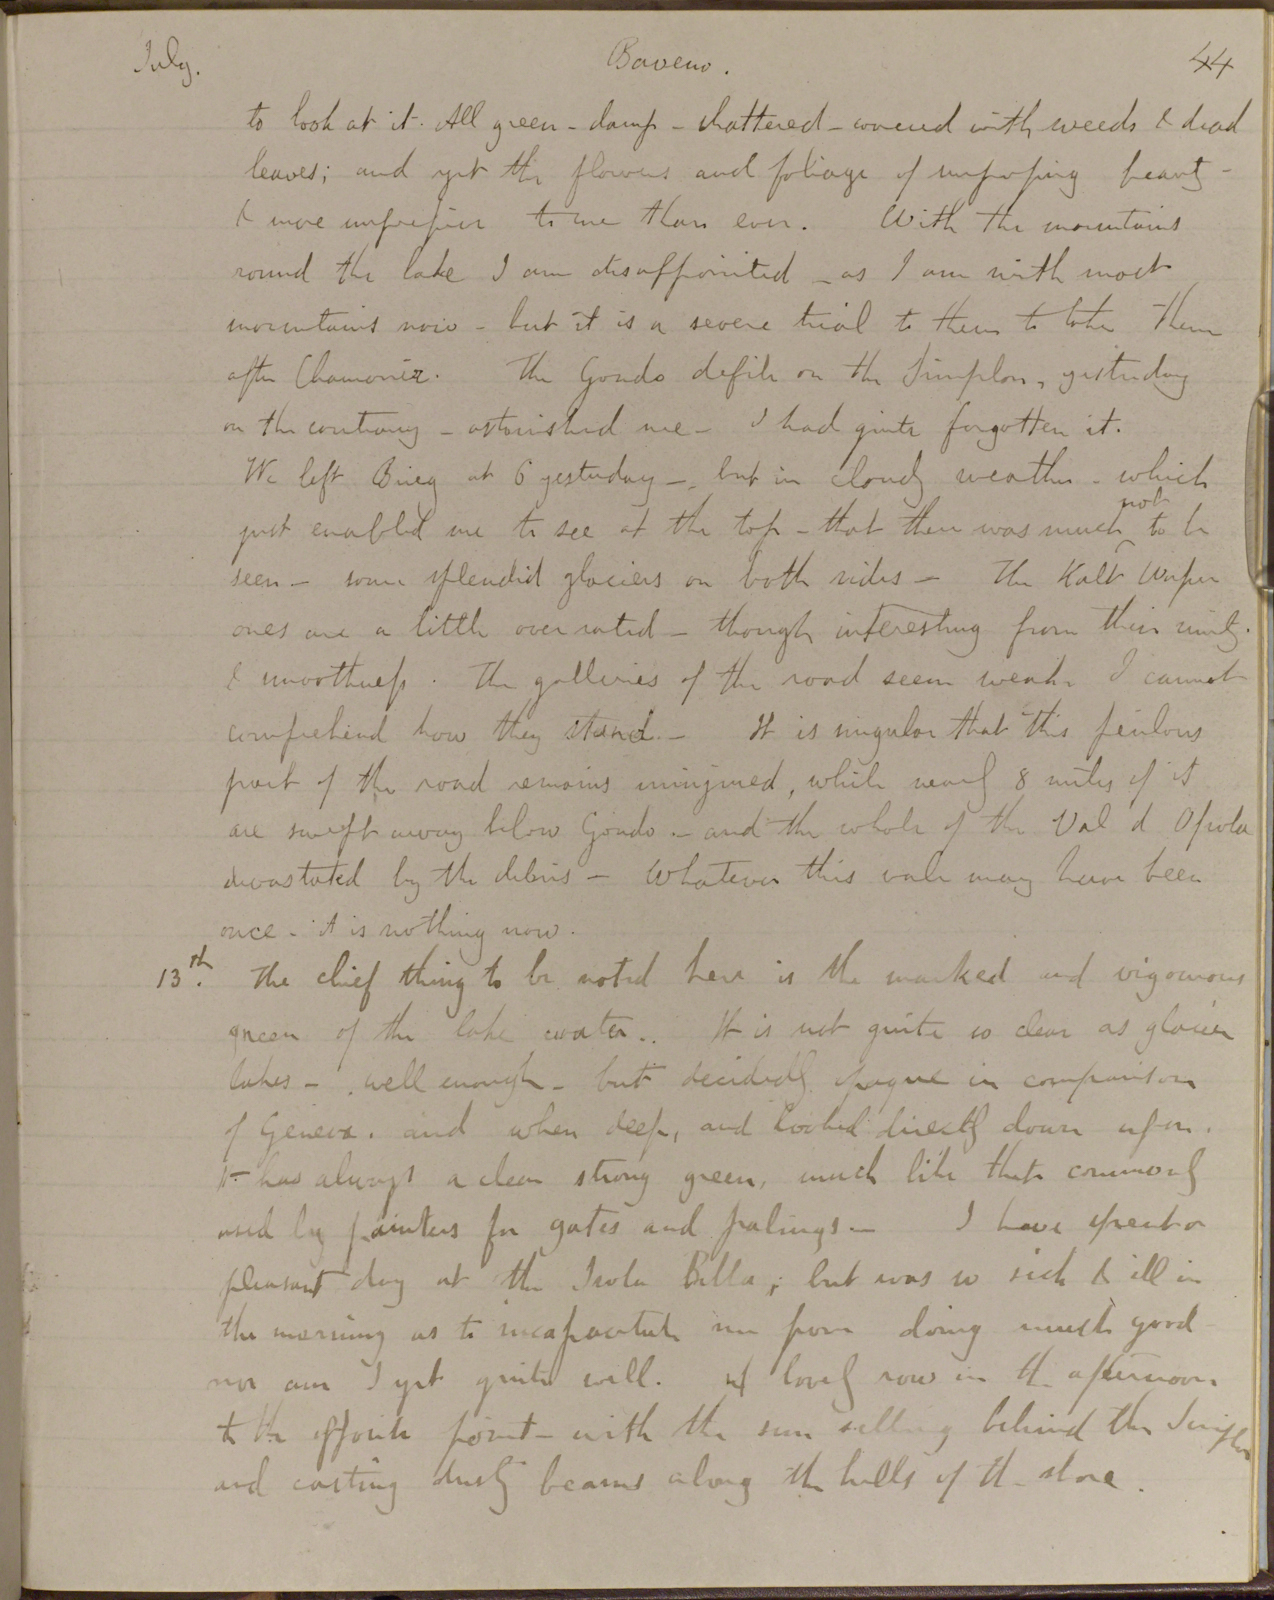 July. Baveno. 44
to look at it. All green - damp - shattered - covered with weeds & dead
leaves; and yet the flowers and foliage of surpassing beauty -
& more impressive to me than ever. With the mountains
round the lake I am disappointed - as I am with most
mountains now - but it is a severe trial to them to take them
after Chamonix. The Gondo defile on the Simplon, yesterday
on the contrary - astonished me - I had quite forgotten it.
We left Brieg at 6 yesterday -, but in cloudy weather - which
just enabled me to see at the top - that there was much not to be
seen - some splendid glaciers on both sides - The Kalt Wasser
ones are a little overrated - though interesting from their unity.
& smoothness. The galleries of the road seem weak. I cannot
comprehend how they stand. - It is singular that this perilous
part of the road remains uninjured, while nearly 8 miles of it
are swept away below Gondo. - and the whole of the Val d Ossola
devastated by the debris - Whatever this vale may have been
once - it is nothing now.
13th. The chief thing to be noted here is the marked and vigourous
green of the lake water.. It is not quite so clear as glacier
lakes - well enough - but decidedly opaque in comparison
of Geneva. and when deep, and looked directly down upon.
It has always a clear strong green, much like that commonly
used by painters for gates and palings - I have spent a
pleasant day at the Isola Bella; but was so sick & ill in
the morning as to incapacitate me from doing much good -
nor am I yet quite well. A lovely row in the afternoon
to the opposite point - with the sun setting behind the Simplon
and casting dusty beams along the hills of the shore.